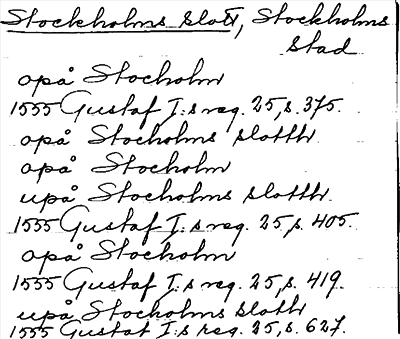 Stockholms slott, Stockholms
stad
opå Stocholm
1555 Gustaf I:s reg. 25, s. 375.
opå Stocholms slotth
opå Stocholm
upå Stocholms slotth
1555 Gustaf I:s reg. 25, s. 405.
opå Stocholm
1555 Gustaf I:s reg. 25, s. 419.
upå Stocholms sloth
1555 Gustaf I:s reg. 25, s. 627.